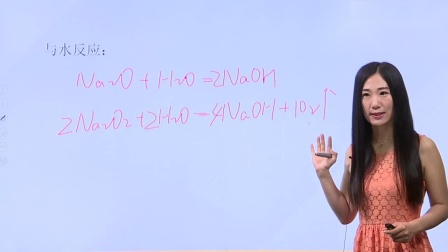 与水反应：
Na₂O + H₂O = 2NaOH
2Na₂O₂ + 2H₂O = 4NaOH + 1O₂↑